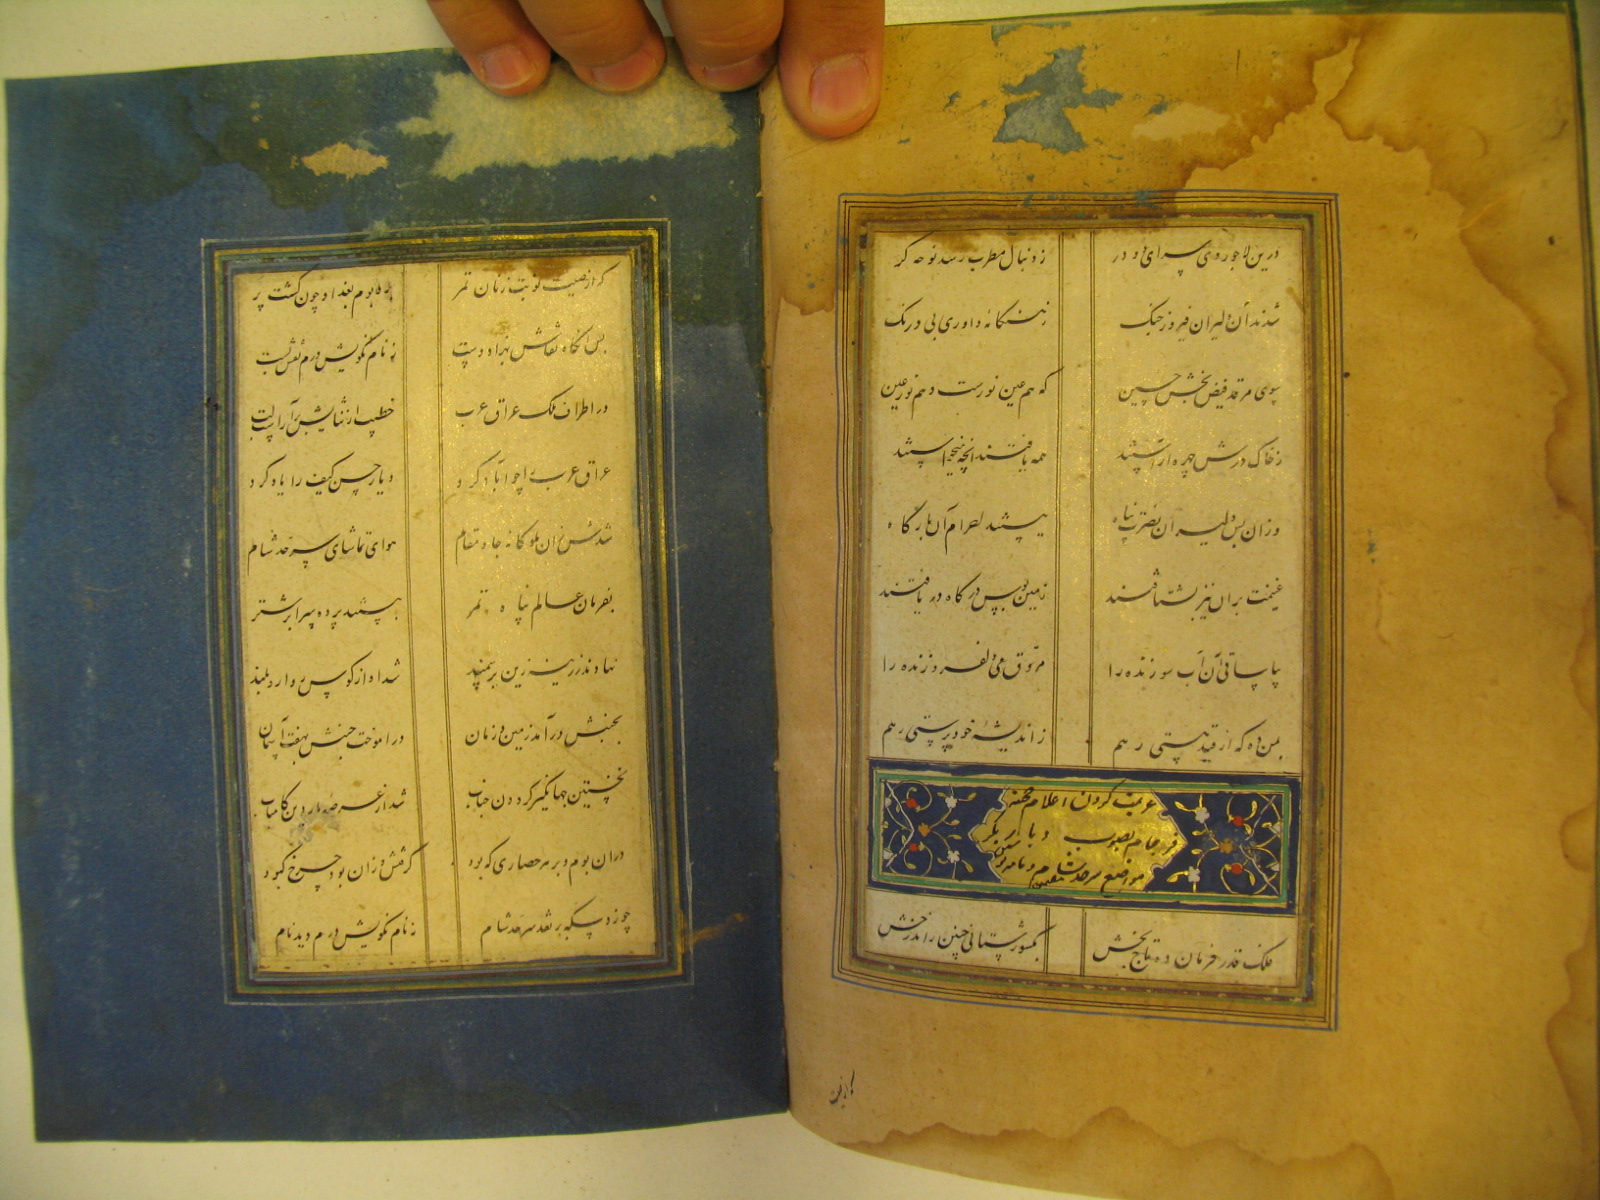 درین لاجوردی سرای دو در
ز دنبال مطرب رسد نوحه گر
شدند آن دلیران فیروز جنگ
بی درنگ
سوی مرقد فیض بخش حسین
که هم عین نورست و هم نور عین
ز خاک درش چهره آراستند
همه یافتند آنچه میخواستند
وزان پس دلیران نصرت پناه
ببستند احرام آن بارگاه
غنیمت بران نیز بشتافتند
زمین بوس درگاه دریافتند
بیا ساقی آن آب سوزنده را
مروق می دلفروزنده را
بمن ده که از قید هستی رهم
ز اندیشهٔ خودپرستی رهم
عزیمت کردن اعلام
فرجام بصوب دیار بکر
مواضع سرحد شام و
فلک قدر فرمان ده تاج بخش
بکشورستانی چنین راند رخش
که از صیت نوبت زنان تمر
بوم بغداد چون گشت پر
پس آنگاه نقاش بهزاد دست
به نام نکویش درم نقش بست
در اطراف ملک عراق عرب
خطیب از ثنایش بیاراست لب
عراق عرب را چو آباد کرد
دیار حسن کیف را یاد کرد
شدش زان ملوکانه جاه و مقام
هوای تماشای سرحد شام
بفرمان عالم پناه تمر
ببستند پرده سرا بر شتر
نهادند زرینه زین بر سمند
شد آواز کوس روارو بلند
بجنبش درآمد زمین و زمان
درآموخت جنبش بهفت آسمان
نخستین جهانگیر گردون جناب
شد از عرصه ماردین کامیاب
دران بوم و بر هر حصاری که بود
گرفتش ازان بود چرخ کبود
چو زد سکه بر نقد سرحد شام
ز نام نکویش درم دید نام
که از صیت